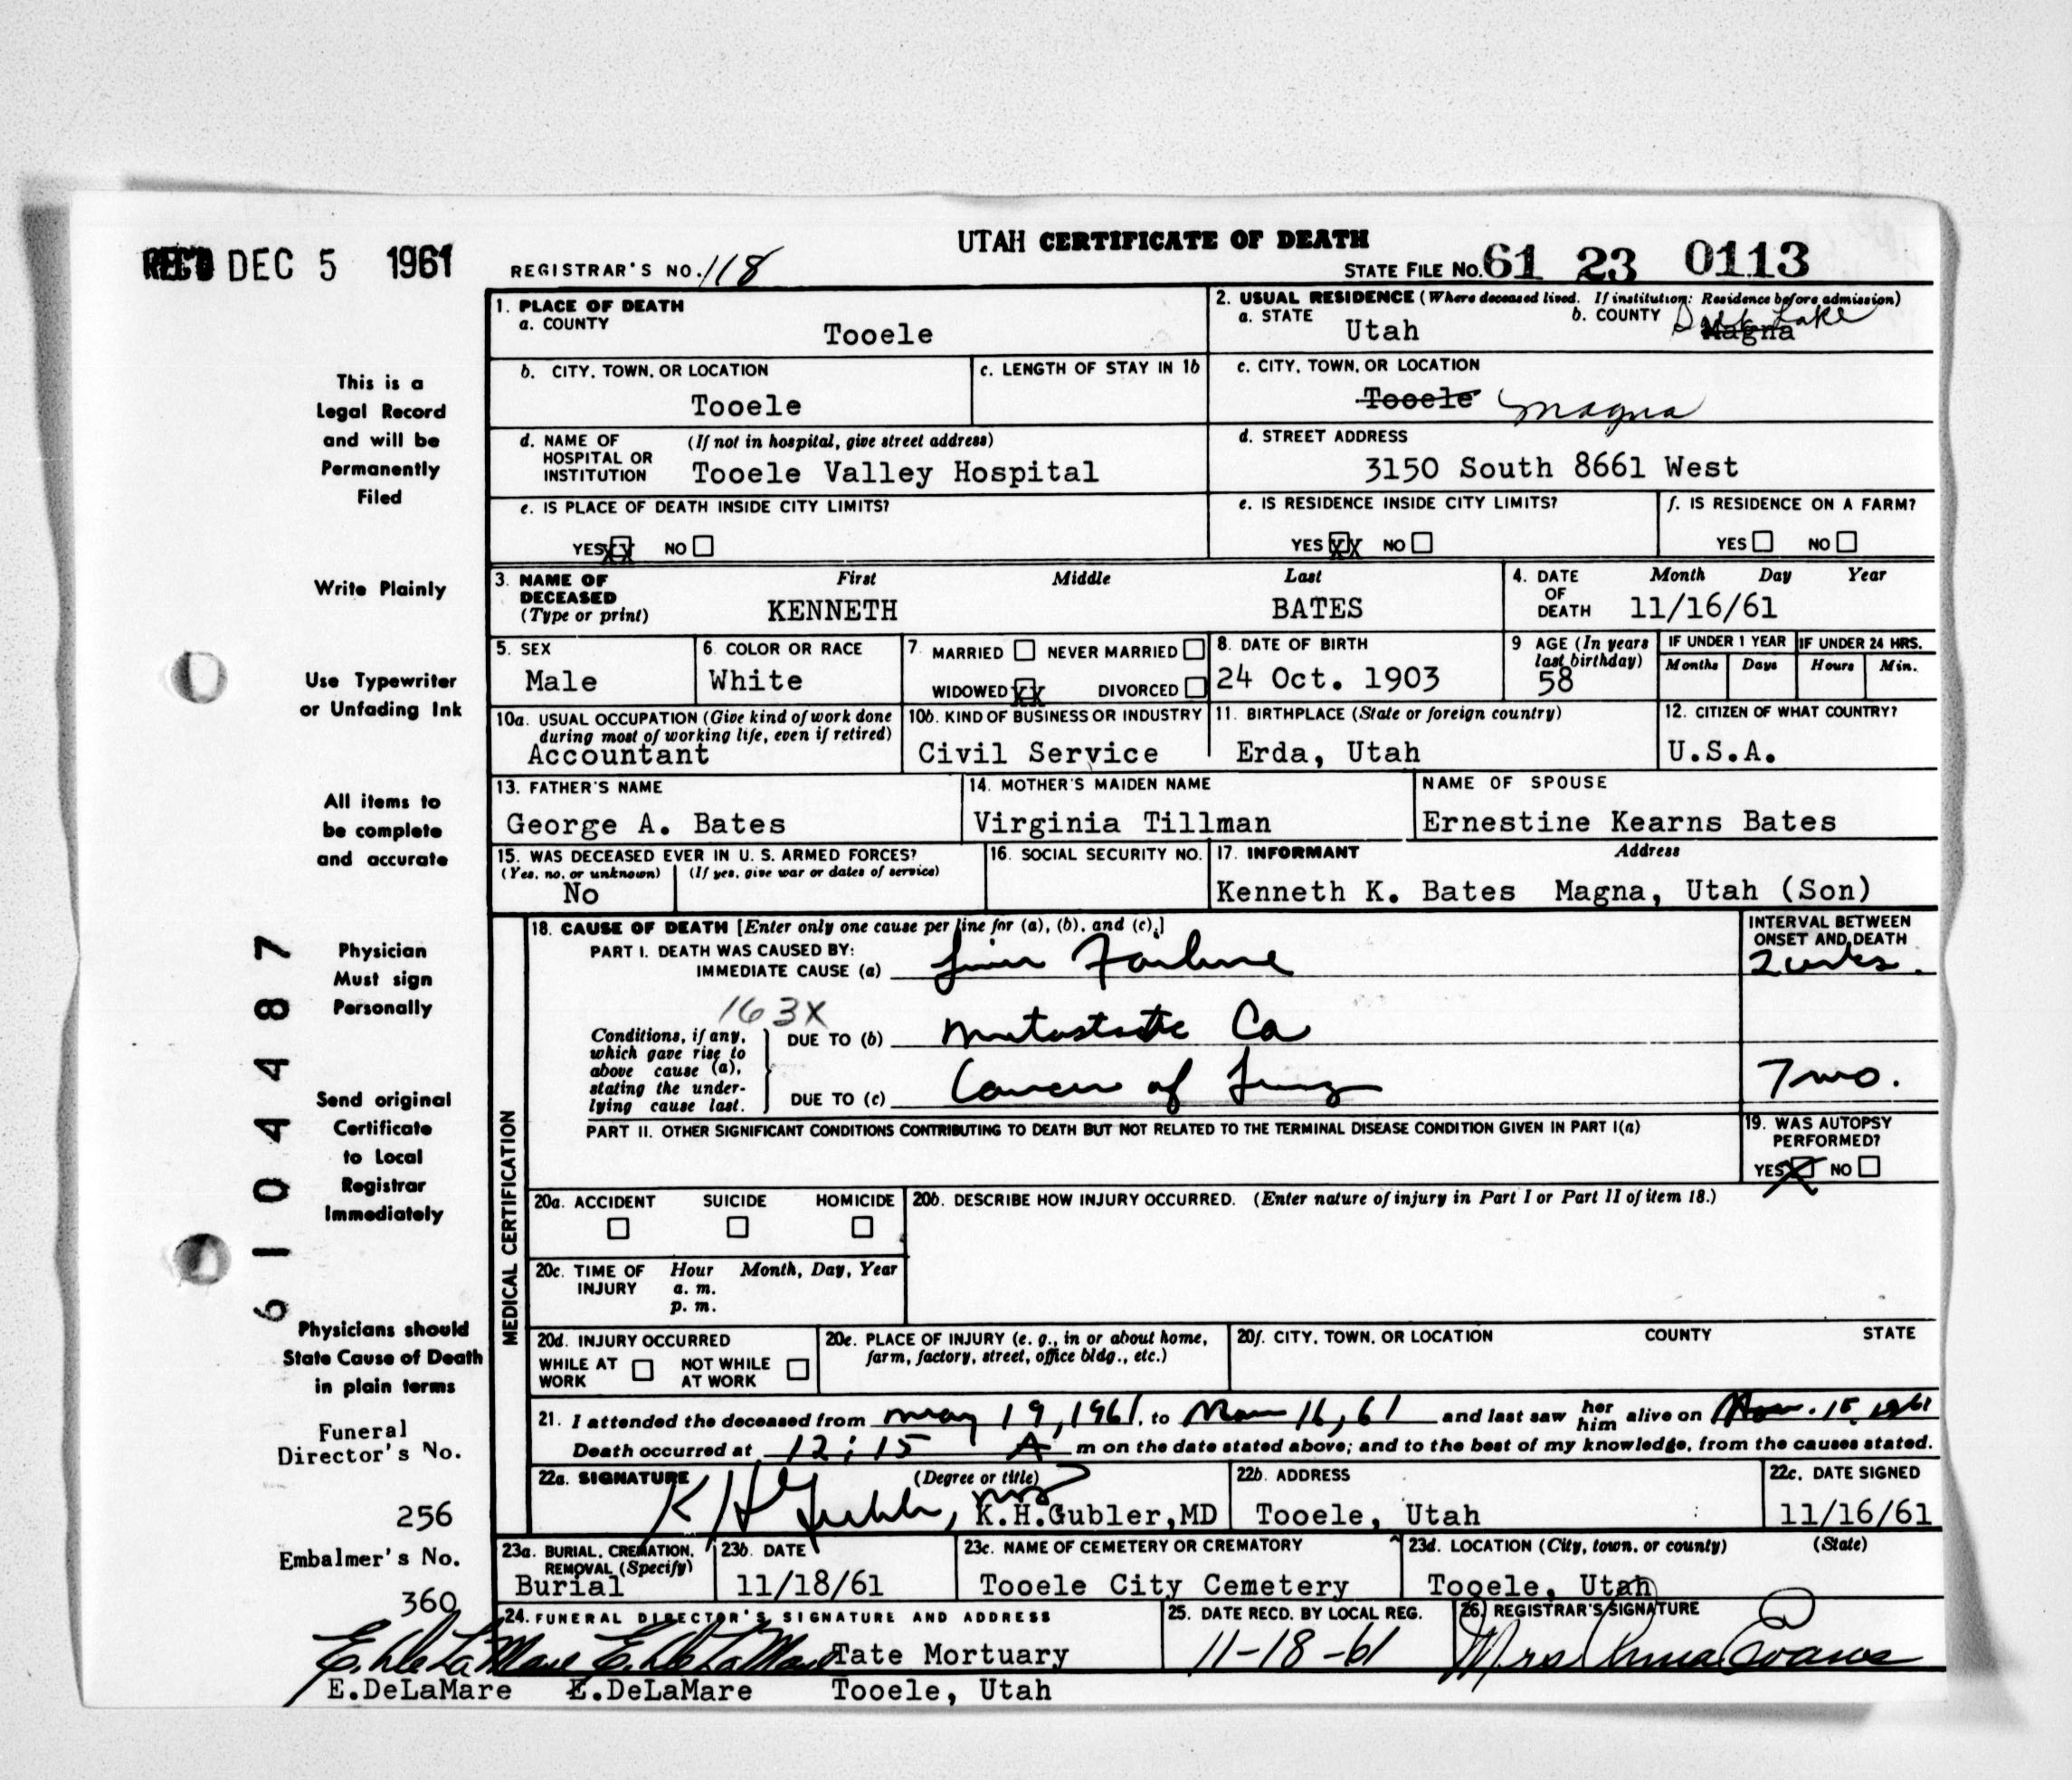 UTAH CERTIFICATE OF DEATH
REC'D DEC 5 1961
REGISTRAR'S NO. 118
STATE FILE NO. 61 23 0113
1. PLACE OF DEATH
a. COUNTY
Tooele
2. USUAL RESIDENCE (Where deceased lived. If institution: Residence before admission)
a. STATE
Utah
b. COUNTY
Salt Lake
Magna
b. CITY, TOWN, OR LOCATION
Tooele
c. LENGTH OF STAY IN 1b
c. CITY, TOWN, OR LOCATION
Tooele Magna
d. NAME OF HOSPITAL OR INSTITUTION
(If not in hospital, give street address)
Tooele Valley Hospital
d. STREET ADDRESS
3150 South 8661 West
e. IS PLACE OF DEATH INSIDE CITY LIMITS?
YES XX NO
e. IS RESIDENCE INSIDE CITY LIMITS?
YES XX NO
f. IS RESIDENCE ON A FARM?
YES NO
3. NAME OF DECEASED (Type or print)
First Middle Last
KENNETH BATES
4. DATE OF DEATH
Month Day Year
11/16/61
5. SEX
Male
6. COLOR OR RACE
White
7. MARRIED NEVER MARRIED
WIDOWED XX DIVORCED
8. DATE OF BIRTH
24 Oct. 1903
9 AGE (In years last birthday)
58
IF UNDER 1 YEAR
Months Days
IF UNDER 24 HRS.
Hours Min.
10a. USUAL OCCUPATION (Give kind of work done during most of working life, even if retired)
Accountant
10b. KIND OF BUSINESS OR INDUSTRY
Civil Service
11. BIRTHPLACE (State or foreign country)
Erda, Utah
12. CITIZEN OF WHAT COUNTRY?
U.S.A.
13. FATHER'S NAME
George A. Bates
14. MOTHER'S MAIDEN NAME
Virginia Tillman
NAME OF SPOUSE
Ernestine Kearns Bates
15. WAS DECEASED EVER IN U. S. ARMED FORCES?
(Yes, no, or unknown) (If yes, give war or dates of service)
No
16. SOCIAL SECURITY NO.
17. INFORMANT Address
Kenneth K. Bates Magna, Utah (Son)
MEDICAL CERTIFICATION
18. CAUSE OF DEATH [Enter only one cause per line for (a), (b), and (c).]
PART I. DEATH WAS CAUSED BY:
IMMEDIATE CAUSE (a) Liver Failure
INTERVAL BETWEEN ONSET AND DEATH
2 wks.
163X
Conditions, if any, which gave rise to above cause (a), stating the underlying cause last.
DUE TO (b) Metastatic Ca
DUE TO (c) Cancer of Lung
7 mo.
PART II. OTHER SIGNIFICANT CONDITIONS CONTRIBUTING TO DEATH BUT NOT RELATED TO THE TERMINAL DISEASE CONDITION GIVEN IN PART I(a)
19. WAS AUTOPSY PERFORMED?
YES X NO
20a. ACCIDENT SUICIDE HOMICIDE
20b. DESCRIBE HOW INJURY OCCURRED. (Enter nature of injury in Part I or Part II of item 18.)
20c. TIME OF INJURY
Hour Month, Day, Year
a. m.
p. m.
20d. INJURY OCCURRED
WHILE AT WORK NOT WHILE AT WORK
20e. PLACE OF INJURY (e. g., in or about home, farm, factory, street, office bldg., etc.)
20f. CITY, TOWN, OR LOCATION COUNTY STATE
21. I attended the deceased from May 19, 1961, to Nov 16, 61 and last saw her him alive on Nov. 15, 1961
Death occurred at 12:15 A m on the date stated above; and to the best of my knowledge, from the causes stated.
22a. SIGNATURE (Degree or title)
K H Gubler, MD K.H.Gubler,MD
22b. ADDRESS
Tooele, Utah
22c. DATE SIGNED
11/16/61
23a. BURIAL, CREMATION, REMOVAL (Specify)
Burial
23b. DATE
11/18/61
23c. NAME OF CEMETERY OR CREMATORY
Tooele City Cemetery
23d. LOCATION (City, town, or county) (State)
Tooele, Utah
24. FUNERAL DIRECTOR'S SIGNATURE AND ADDRESS
E. DeLaMare E. DeLaMare Tate Mortuary
E.DeLaMare E.DeLaMare Tooele, Utah
25. DATE RECD. BY LOCAL REG.
11-18-61
26. REGISTRAR'S SIGNATURE
Mrs Anna Evans
This is a
Legal Record
and will be
Permanently
Filed
Write Plainly
Use Typewriter
or Unfading Ink
All items to
be complete
and accurate
Physician
Must sign
Personally
Send original
Certificate
to Local
Registrar
Immediately
Physicians should
State Cause of Death
in plain terms
Funeral
Director's No.
256
Embalmer's No.
360
6104487